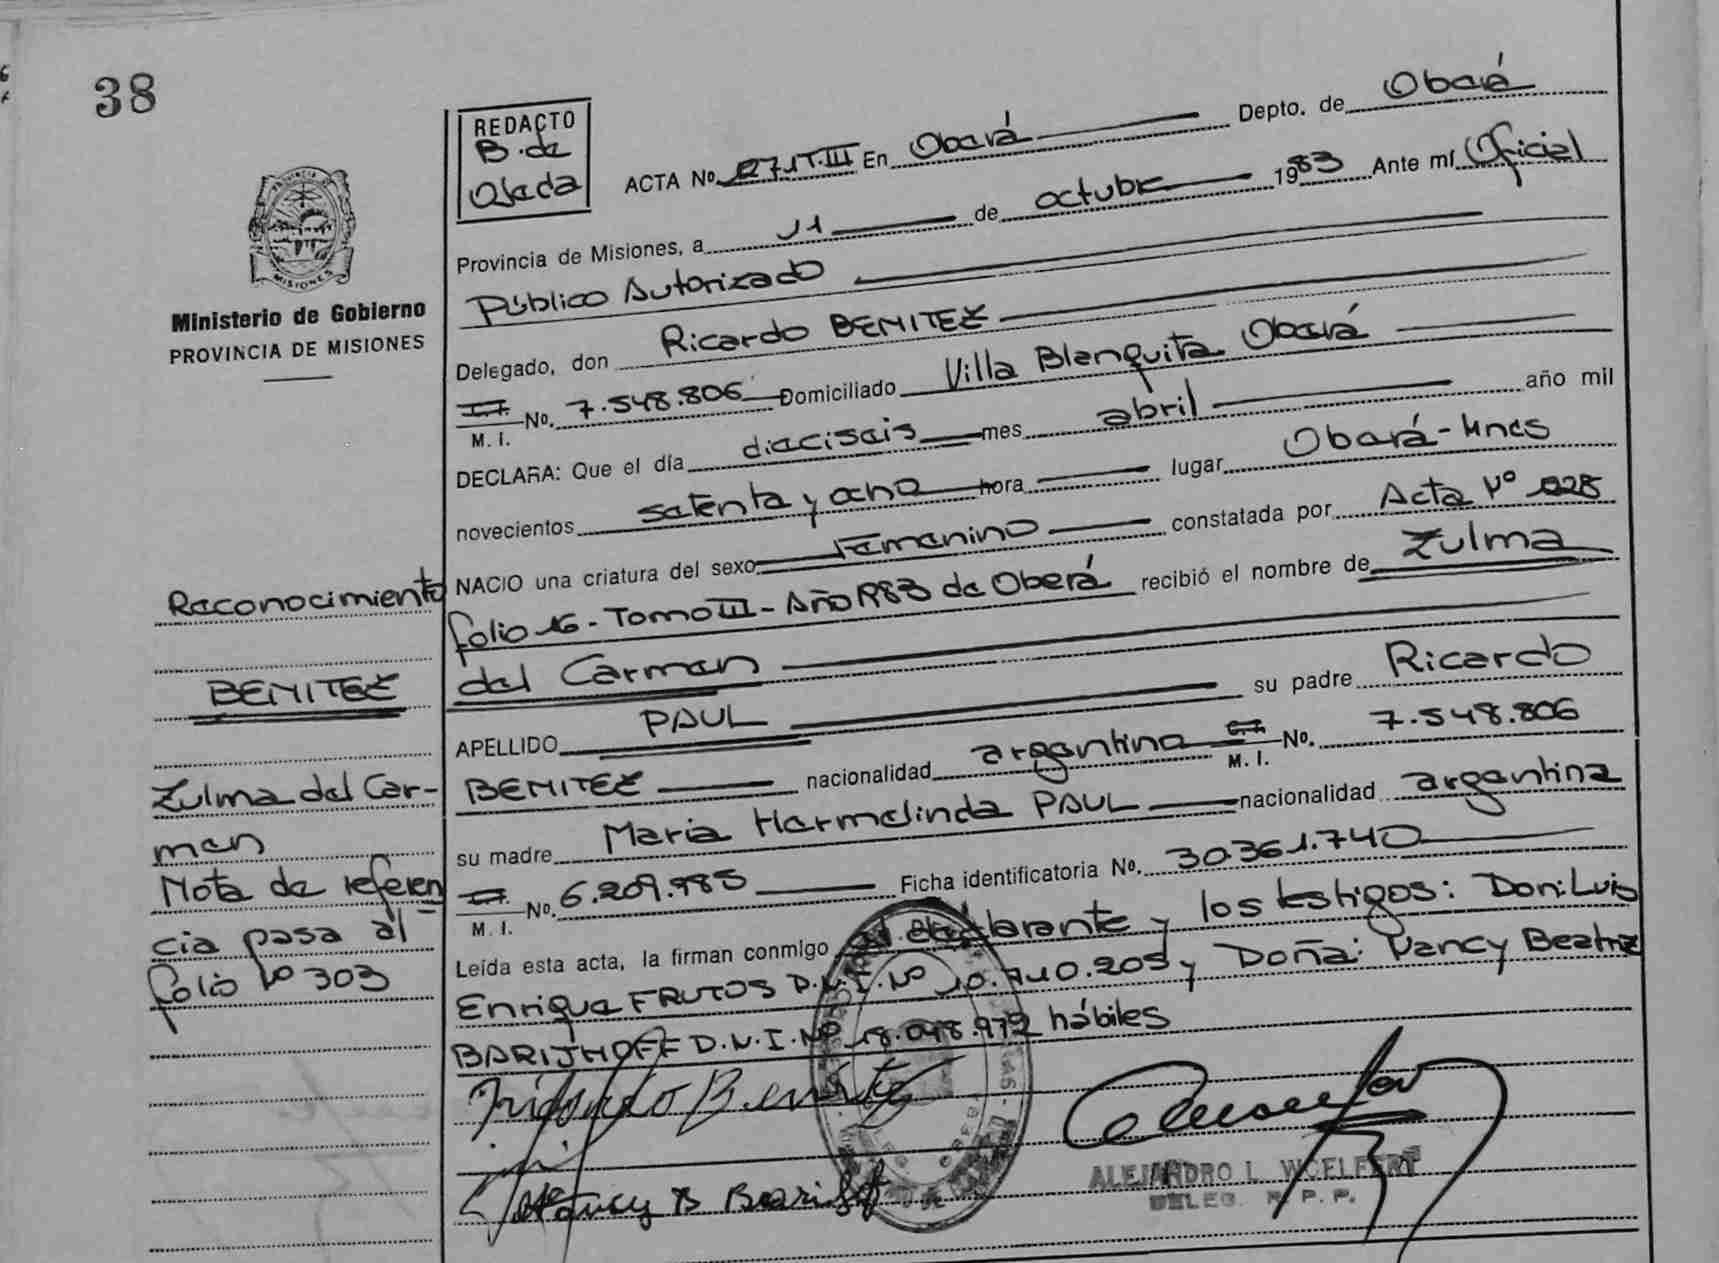 38
REDACTO
B. de
Ojeda
ACTA No. 271 T. III En Oberá Depto. de Oberá
Provincia de Misiones, a 11 de octubre 1983 Ante mí Oficial
Público Autorizado
Delegado, don Ricardo BENITEZ
M. I. No. 7.548.806 Domiciliado Villa Blanquita Oberá
DECLARA: Que el día dieciseis mes abril año mil
novecientos setenta y ocho hora lugar Oberá-Mnes
NACIO una criatura del sexo Femenino constatada por Acta Nº 028
folio 16 - Tomo III - Año 1983 de Oberá recibió el nombre de Zulma
del Carmen
APELLIDO PAUL su padre Ricardo
BENITEZ nacionalidad argentina M. I. No. 7.548.806
su madre Maria Hermelinda PAUL nacionalidad argentina
M. I. No. 6.209.985 Ficha identificatoria No. 30.361.740
Leída esta acta, la firman conmigo el declarante y los testigos: Don: Luis
Enrique FRUTOS D.N.I. Nº 10.710.205 y Doña: Nancy Beatriz
BARIJHOFF D.N.I. Nº 18.048.979 hábiles
Benitez
Nancy B
ALEJANDRO L. WOELFERT
DELEG. R. P. P.
PROVINCIA DE
MISIONES
Ministerio de Gobierno
PROVINCIA DE MISIONES
Reconocimiento
BENITEZ
Zulma del Car-
men
Nota de referen
cia pasa al
folio Nº 303